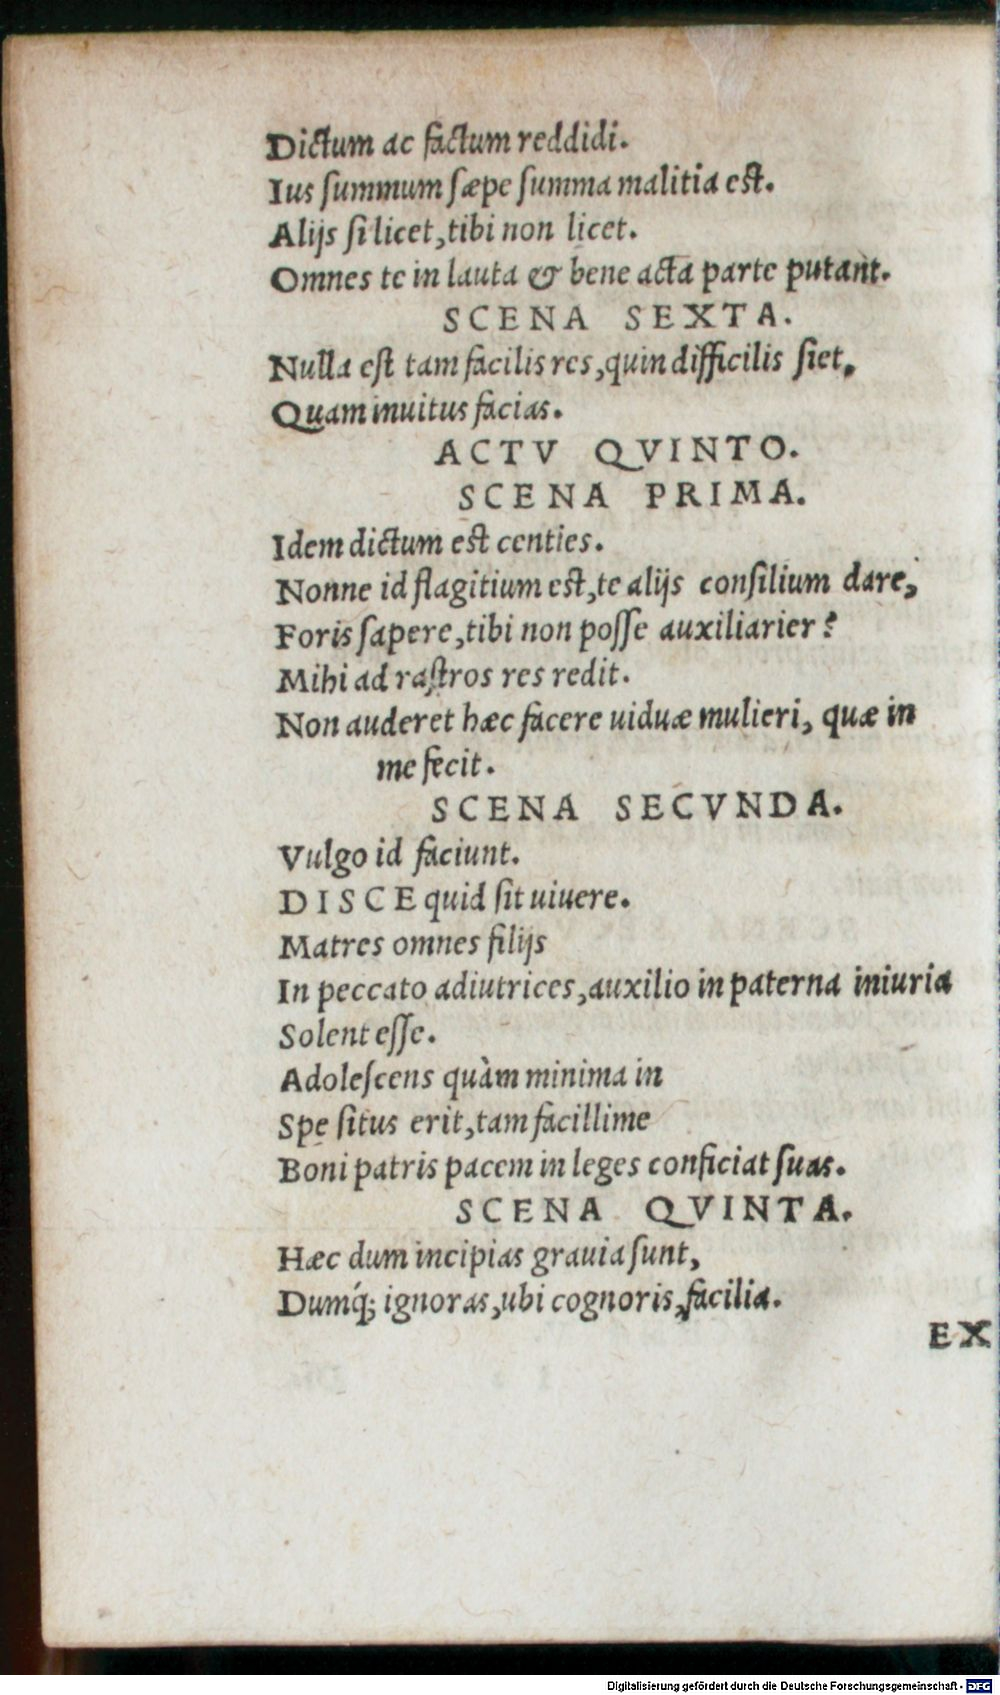 Dictum ac factum reddidi.
Ius ſummum ſæpe ſumma malitia eſt.
Alijs ſi licet, tibi non licet.
Omnes te in lauta & bene acta parte putant.
SCENA SEXTA.
Nulla eſt tam facilis res, quin difficilis ſiet,
Quam inuitus facias.
ACTV QVINTO.
SCENA PRIMA.
Idem dictum eſt centies.
Nonne id flagitium eſt, te alijs conſilium dare,
Foris ſapere, tibi non poſſe auxiliarier?
Mihi ad raſtros res redit.
Non auderet hæc facere uiduæ mulieri, quæ in
me fecit.
SCENA SECVNDA.
Vulgo id faciunt.
DISCE quid ſit uiuere.
Matres omnes filijs
In peccato adiutrices, auxilio in paterna iniuria
Solent eſſe.
Adoleſcens quàm minima in
Spe ſitus erit, tam facillime
Boni patris pacem in leges conficiat ſuas.
SCENA QVINTA.
Hæc dum incipias grauia ſunt,
Dumq́; ignoras, ubi cognoris, facilia.
EX
Digitalisierung gefördert durch die Deutsche Forschungsgemeinschaft - DFG